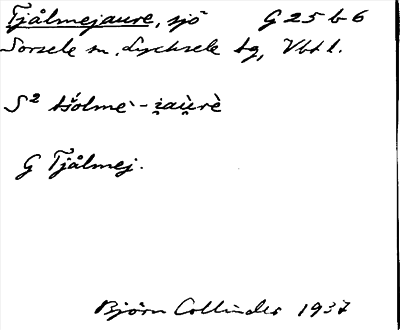 Tjålmejaure, sjö G 25 b 6
Sorsele sn, Lycksele tg, Vbtl.
S² tšolmè-i̯au̯rè
G Tjålmej.
Björn Collinder 1937